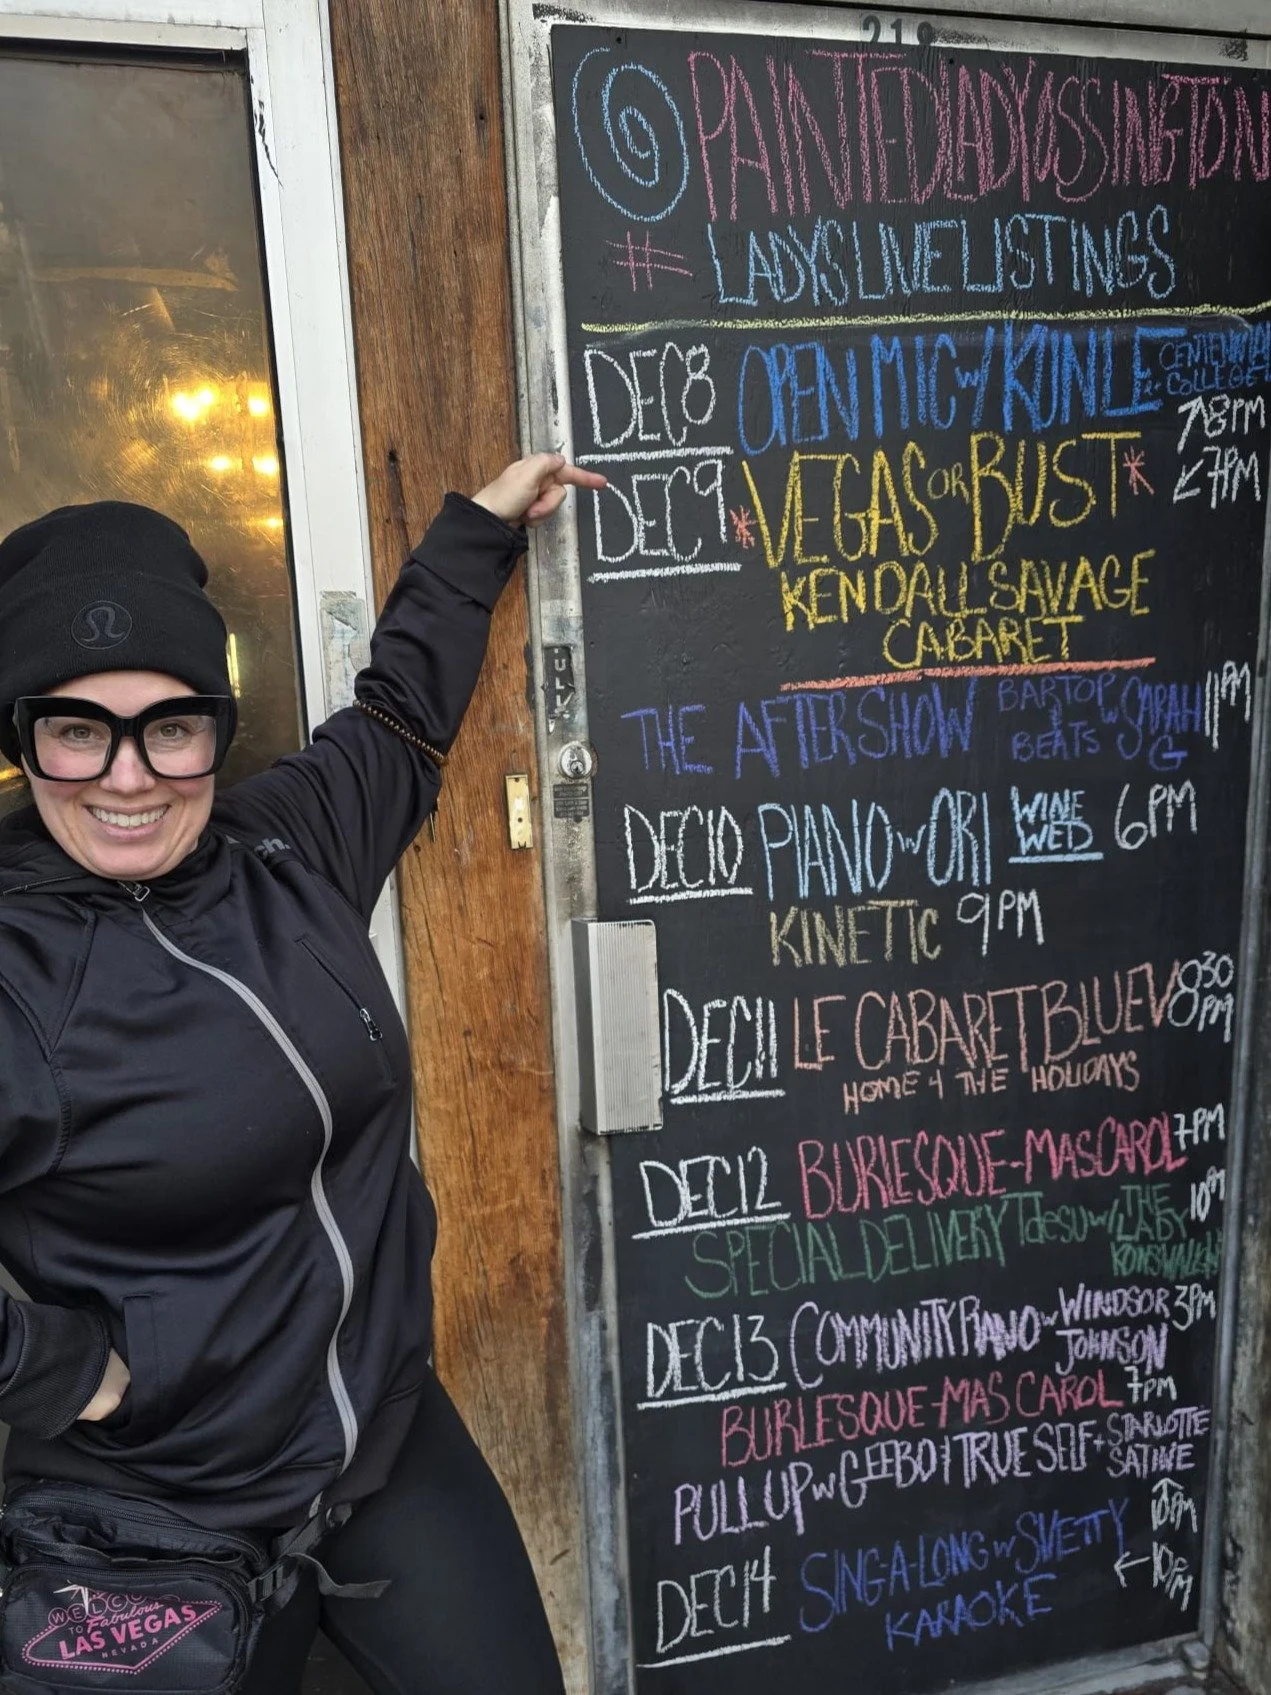 219
PAINTEDLADYOSSINGTON
# LADYS LIVE LISTINGS
DEC 8 OPEN MIC w/ KUNLE CENTENNIAL COLLEGE 7-8PM
DEC 9 *VEGAS OR BUST* 7PM
KENDALL SAVAGE
CABARET
THE AFTERSHOW BARTOP BEATS w SARAH G 11PM
DEC 10 PIANO w ORI WINE WED 6PM
KINETIC 9PM
DEC 11 LE CABARET BLUEV 830 PM
HOME 4 THE HOLIDAYS
DEC 12 BURLESQUE-MAS CAROL 7PM
SPECIAL DELIVERY w/ THE LADY 10PM
DEC 13 COMMUNITY PIANO w WINDSOR JOHNSON 3PM
BURLESQUE-MAS CAROL 7PM
PULL UP w GEEBO & TRUE SELF + STARLOTTE SATINE
10PM
DEC 14 SING-A-LONG w SVETTY 10PM
KARAOKE
ch.
WELCO
TO Fabulous
LAS VEGAS
NEVADA